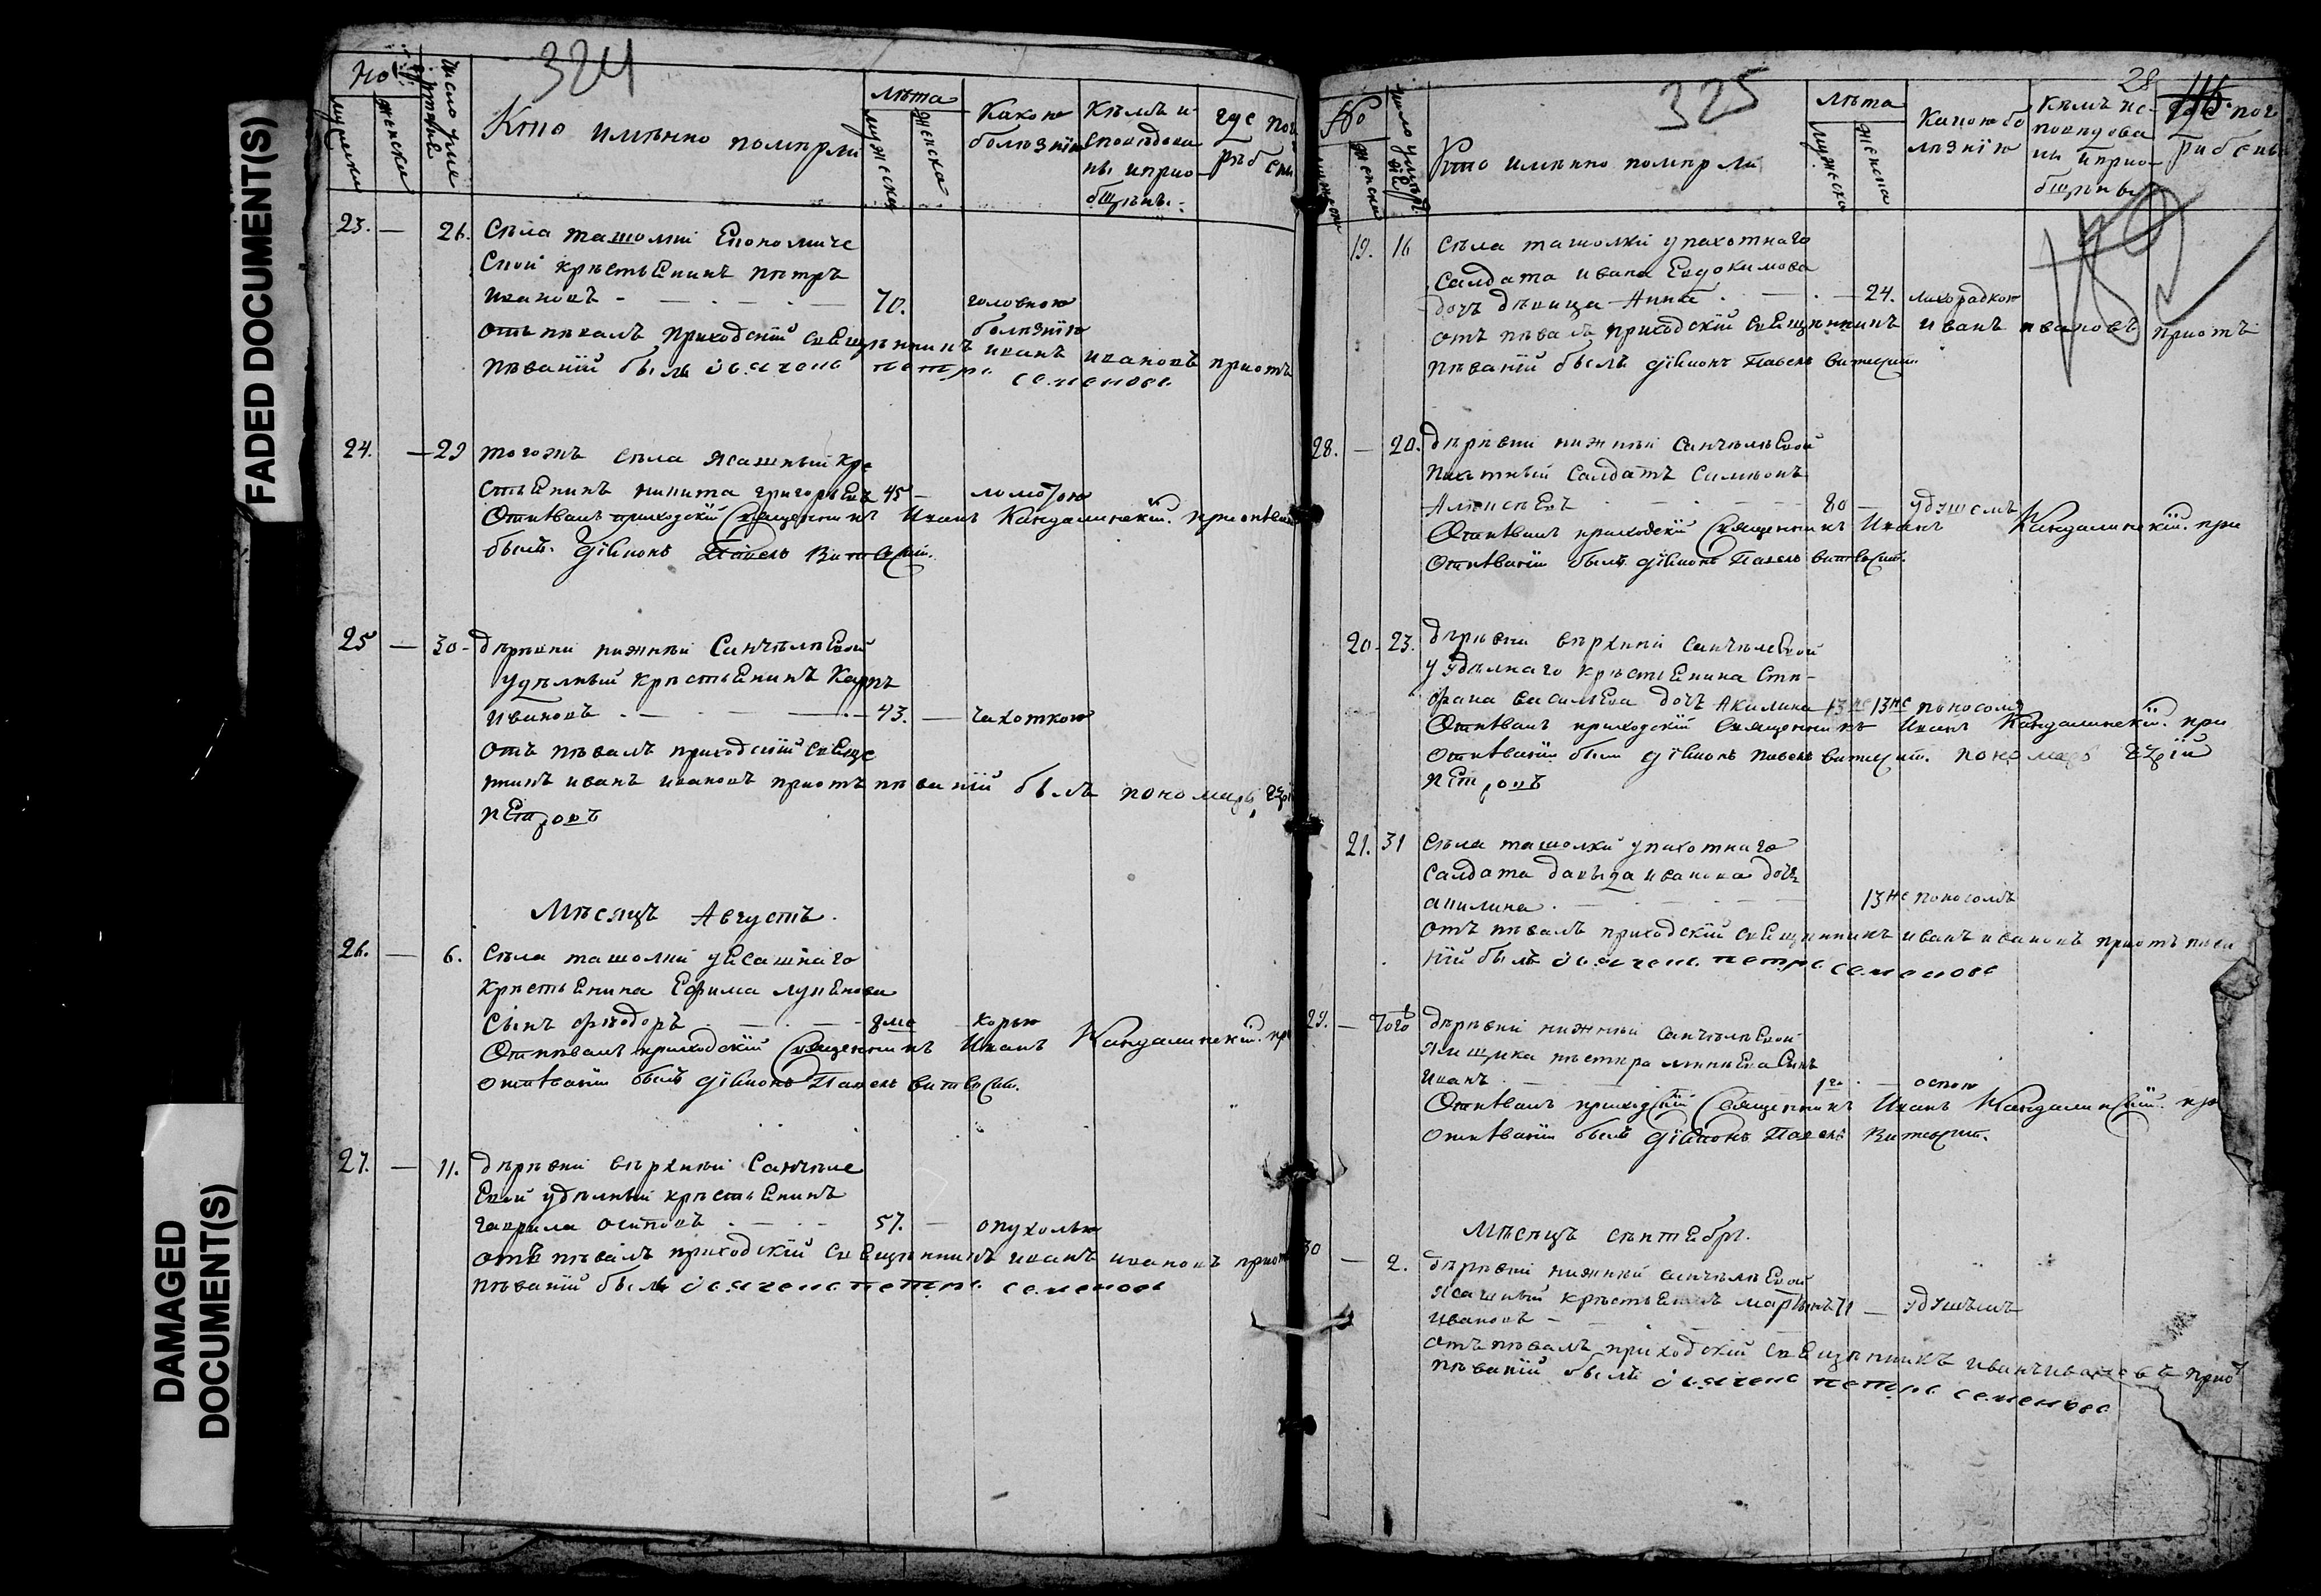 FADED DOCUMENT(S)
DAMAGED
DOCUMENT(S)
324
№
мужеска
женска
число уме
Кто имѣнно помѣрли
лѣта
мужеска
женска
Какою
болезнію
Кѣмъ и
споведова
ны и прио
бщѣны
гдѣ пог
рѣбены
23. — 26. Сѣла ташолки Економиче
Ской крѣстьЕнинъ пѣтръ
Ивановъ — 70. головною
болѣзнію
отъ пѣвалъ приходский свЕщѣнникъ иванъ ивановъ приотъ
пѣваніи былъ дьячекъ петръ семеновъ
24. — 29 тогожъ сѣла Ясашный кре
стьЕнинъ никита григорьЕвъ 45 — ломотою
Отпѣвалъ приходскій Священникъ Иванъ Кандалинскій. при отпѣван
былъ дiаконъ Павелъ
25 — 30 — дѣрѣвни нижнѣй СанчѣлѣЕвой
удѣлный крѣстьЕнинъ Карпъ
Ивановъ — 43. — чахоткою
отъ пѣвалъ приходский свЕще
нникъ иванъ ивановъ приотъ пѣваніи былъ пономарь
пЕтровъ
Мѣсяцъ Августъ.
26. — 6. Сѣла ташолки уЕсашнаго
крѣстьЕнина Ефима
Сынъ фѣодоръ — 8ме корью
Отпѣвалъ приходскій Священникъ Иванъ Кандалинскій. при
отпѣваніи былъ дiаконъ Павелъ
27. — 11. дѣрѣвни вѣрхнѣй Санчѣле
Евой удѣлный крѣстьЕнинъ
гаврила осиповъ — 57. — опухолью
отъ пѣвалъ приходский свЕщѣнникъ иванъ ивановъ приотъ
пѣваніи былъ дьячекъ петръ семеновъ
325
28
116.
№
женска
Кто имѣнно помѣрли
лѣта
мужеска
женска
Какою бо
лѣзнію
Кѣмъ ис
повѣдова
ны и прио
бщѣны
гдѣ пог
рибены
19. 16 Сѣла ташолки упахотнаго
Салдата ивана Евдокимова
дочъ дѣвица Анна — 24. лихорадкою
отъ пѣвалъ приходский свЕщѣнникъ иванъ ивановъ приотъ
пѣваніи былъ дiаконъ Павелъ
28. — 20. дѣрѣвни нижнѣй СанчѣлѣЕвой
Пахатный Салдатъ Симионъ
АлѣксѣЕвъ — 80 — удушемъ
Отпѣвалъ приходскій Священникъ Иванъ Кандалинскій. при
Отпѣваніи былъ дiаконъ Павелъ
20 — 23. дѣрѣвни вѣрхнѣй СанчѣлеЕвой
уУдѣлнаго крѣстьЕнина Сте-
фана василЬЕва дочъ Акилина 13 не поносомъ
Отпѣвалъ приходскій Священникъ Иванъ Кандалинскій. при
Отпѣваніи были дiаконъ Павелъ пономарь
пЕтровъ
21. 31 Сѣла ташолки упахотнаго
Салдата давыда иванова дочь
акилина — 13 не поносомъ
отъ пѣвалъ приходскій свЕщѣнникъ иванъ ивановъ приотъ пѣва
ніи былъ дьячекъ петръ семеновъ
29. — Того дѣрѣвни нижнѣй СанчѣлѣЕвой
Ямщика пѣтра Сынъ
Иванъ — 1го — оспою
Отпѣвалъ приходскій Священникъ Иванъ Кандалинскій. при
отпѣваніи былъ дiаконъ Павелъ
Мѣсяцъ сѣнтЕбрь.
30 — 2. дѣрѣвни нижнѣй СанчѣлѣЕвой
Ясашный крѣстьЕнинъ 71 — удушьЕмъ
Ивановъ —
отъ пѣвалъ приходскій свЕщѣнникъ иванъ ивановъ приотъ
пѣваніи былъ дьячекъ петръ семеновъ